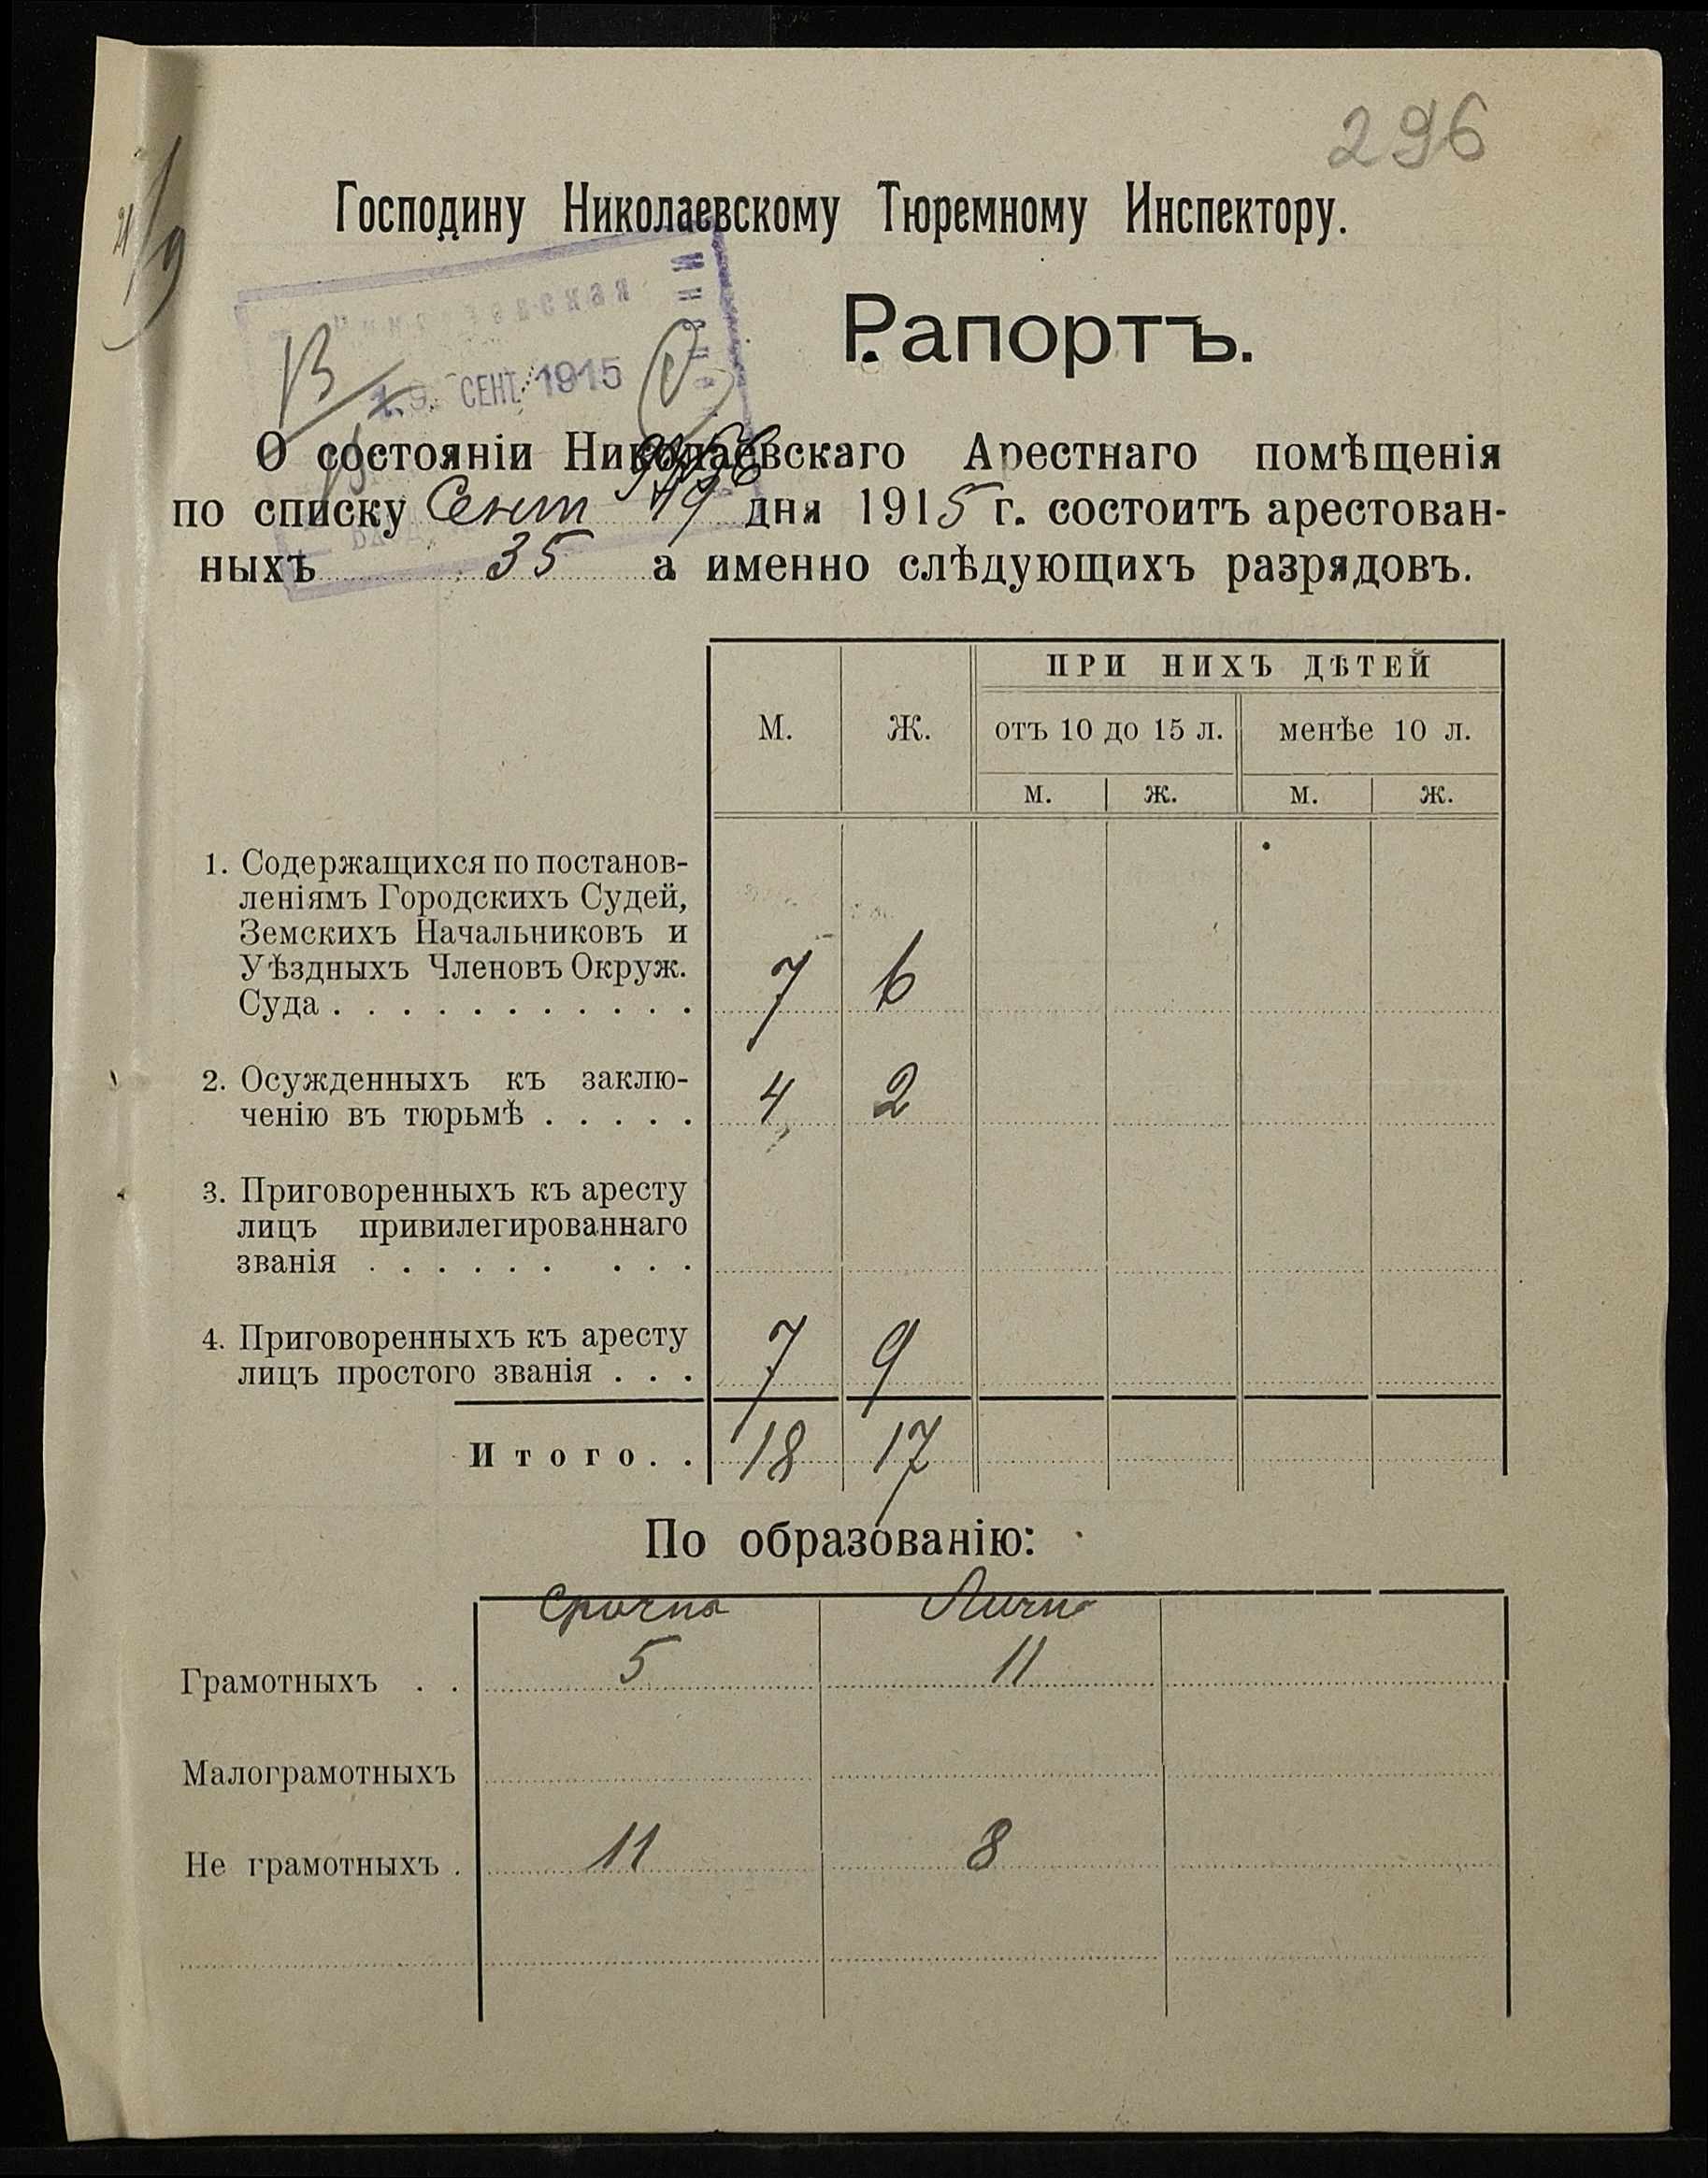 296
Господину Николаевскому Тюремному Инспектору.
Рапортъ.
19 СЕНТ. 1915
О состояніи Николаевскаго Арестнаго помѣщенія
по списку Сент 19 дня 1915 г. состоитъ арестован-
ныхъ 35 а именно слѣдующихъ разрядовъ.
ПРИ НИХЪ ДѢТЕЙ
М. Ж. отъ 10 до 15 л. менѣе 10 л.
м. ж. м. ж.
1. Содержащихся по постанов-
леніямъ Городскихъ Судей,
Земскихъ Начальниковъ и
Уѣздныхъ Членовъ Окруж.
Суда . . . . . . . . . . . 7 6
2. Осужденныхъ къ заклю-
ченію въ тюрьмѣ . . . . . 4 2
3. Приговоренныхъ къ аресту
лицъ привилегированнаго
званія . . . . . . . . .
4. Приговоренныхъ къ аресту
лицъ простого званія . . . 7 9
Итого. . 18 17
По образованію:
Срочна Лична
Грамотныхъ . . 5 11
Малограмотныхъ
Не грамотныхъ . 11 8